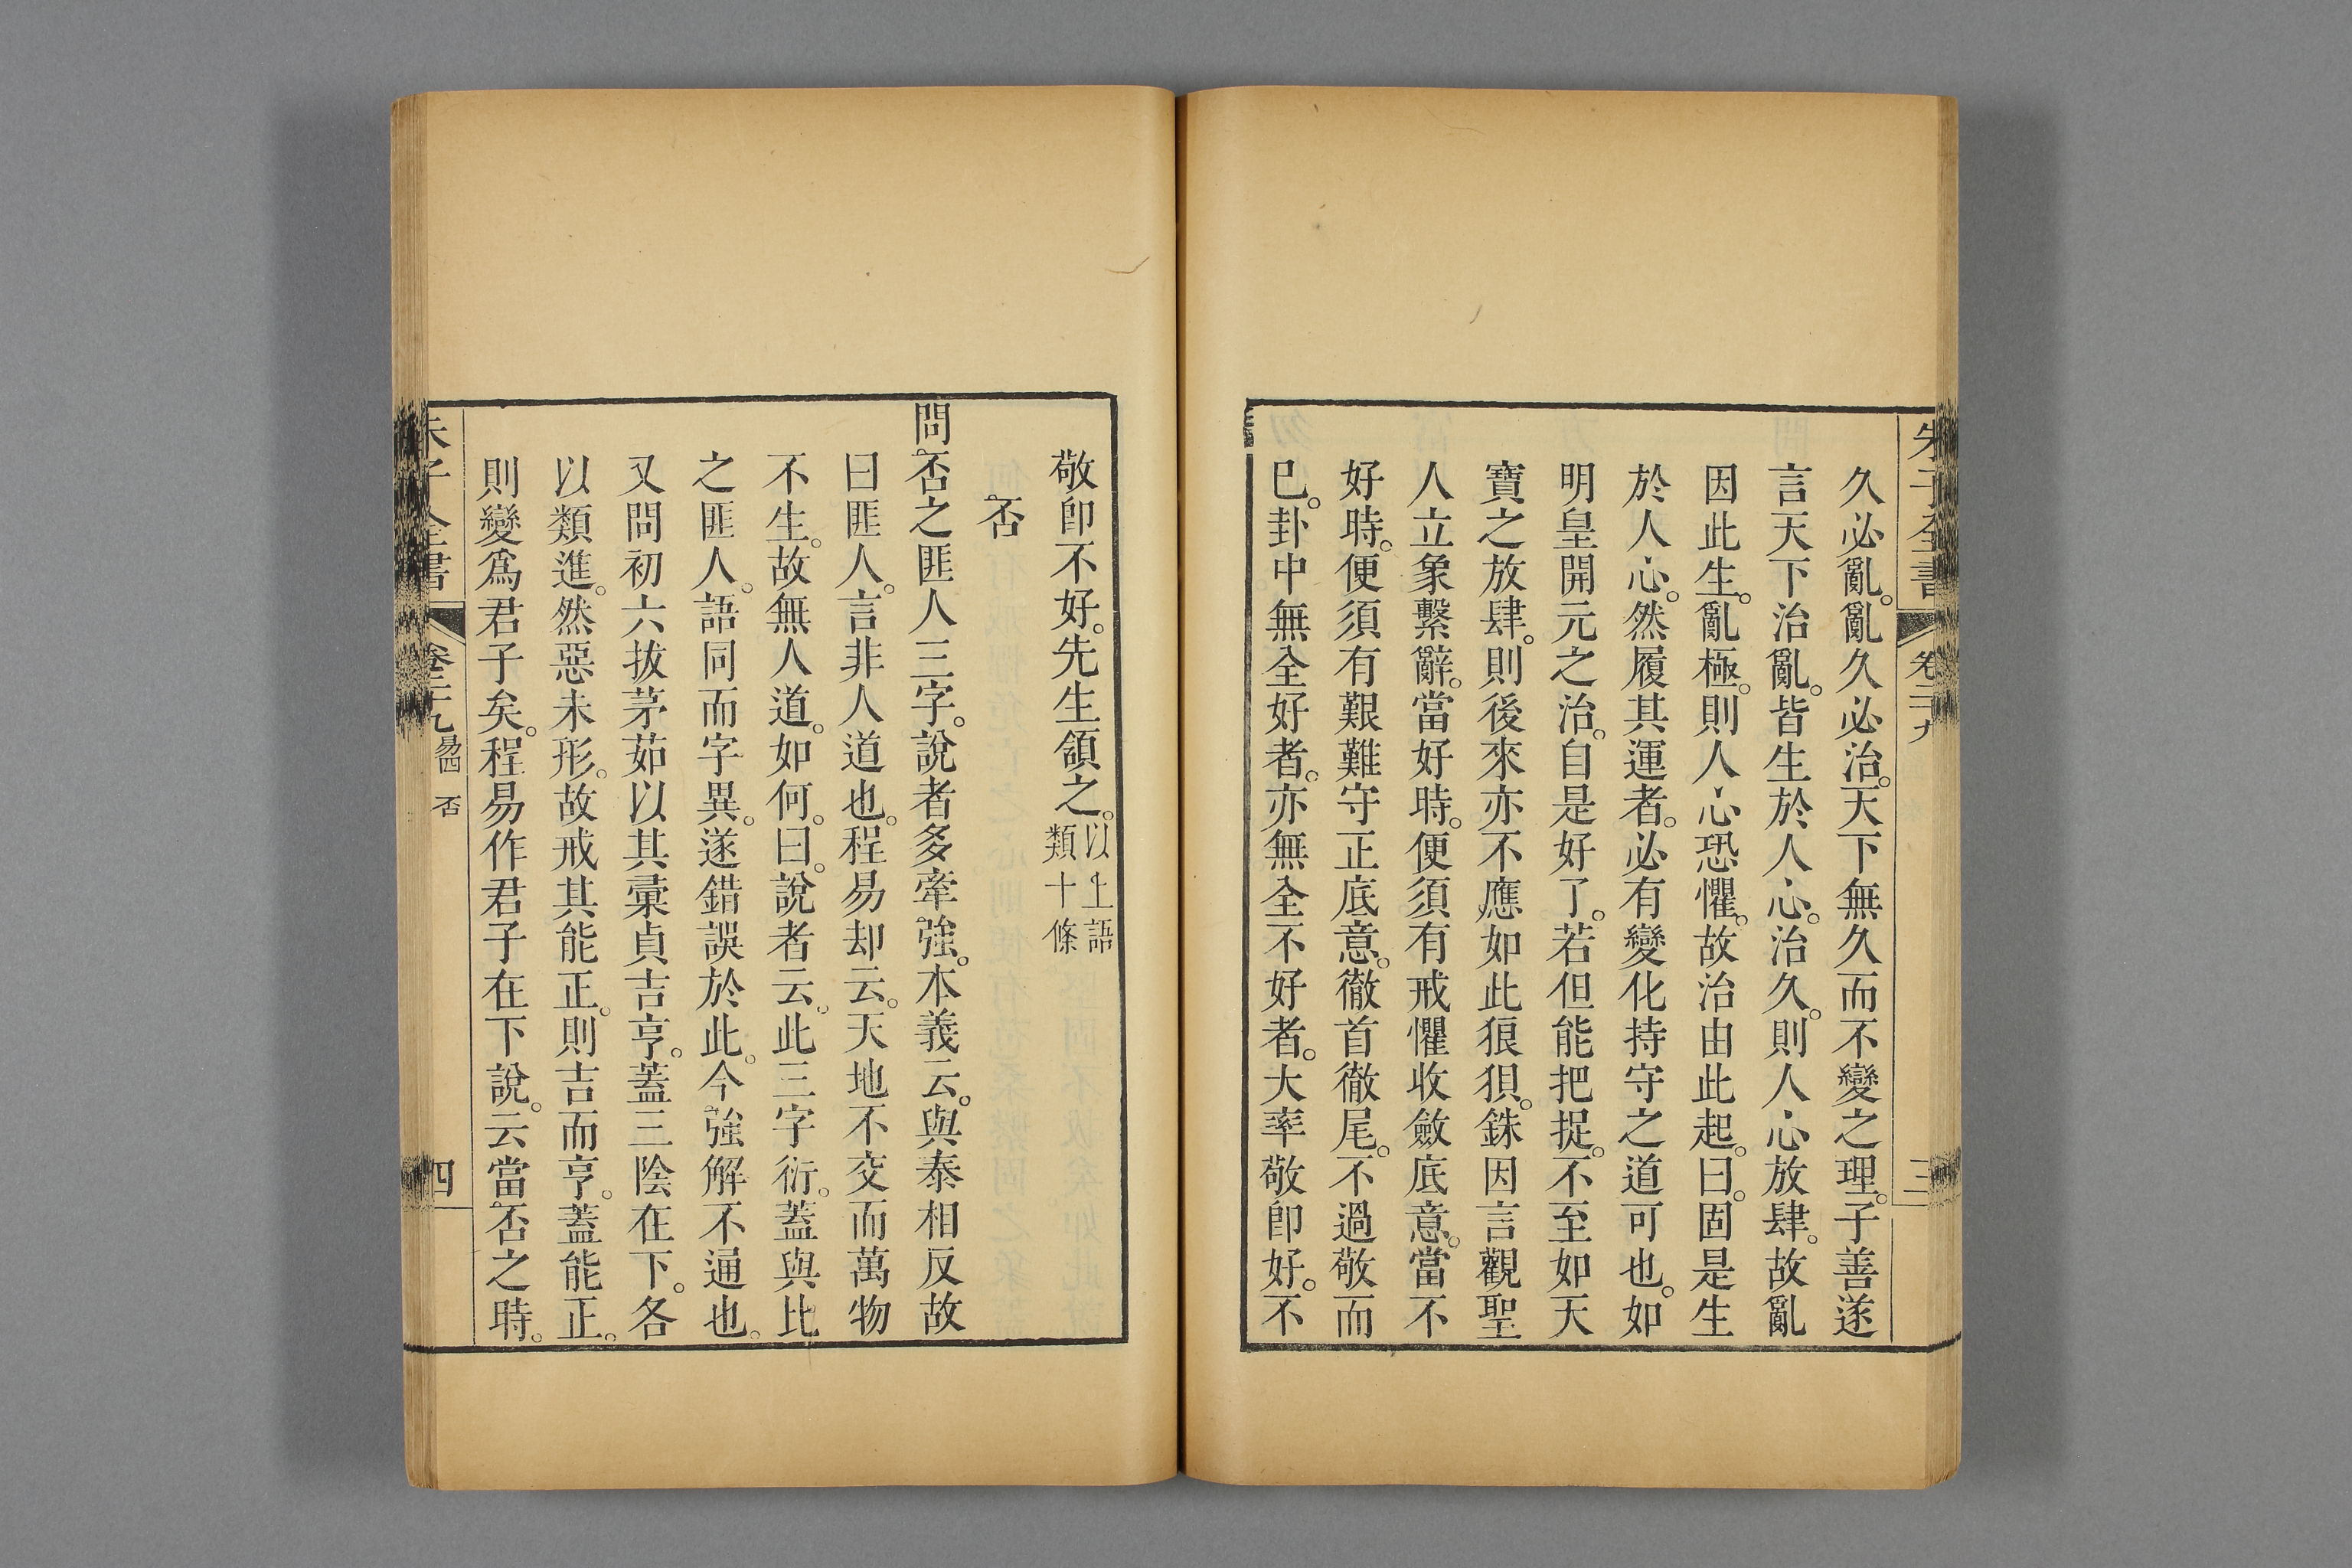 朱子全書 卷二十九 三
久必亂。亂久必治。天下無久而不變之理。子善遂
言天下治亂。皆生於人心。治久。則人心放肆。故亂
因此生。亂極。則人心恐懼。故治由此起。曰。固是生
於人心。然履其運者。必有變化持守之道可也。如
明皇開元之治。自是好了。若但能把捉。不至如天
寶之放肆。則後來亦不應如此狼狽。銖因言觀聖
人立象繫辭。當好時。便須有戒懼收斂底意。當不
好時。便須有艱難守正底意。徹首徹尾。不過敬而
已。卦中無全好者。亦無全不好者。大率敬卽好。不
敬卽不好。先生頷之。以上語類十條
否
問否之匪人三字。說者多牽強。本義云。與泰相反故
曰匪人。言非人道也。程易却云。天地不交而萬物
不生。故無人道。如何。曰。說者云。此三字衍。蓋與比
之匪人。語同而字異。遂錯誤於此。今強解不通也。
又問初六拔茅茹以其彙貞吉亨。蓋三陰在下。各
以類進。然惡未形。故戒其能正。則吉而亨。蓋能正。
則變爲君子矣。程易作君子在下說。云當否之時。
朱子全書 卷二十九 易四 否 四